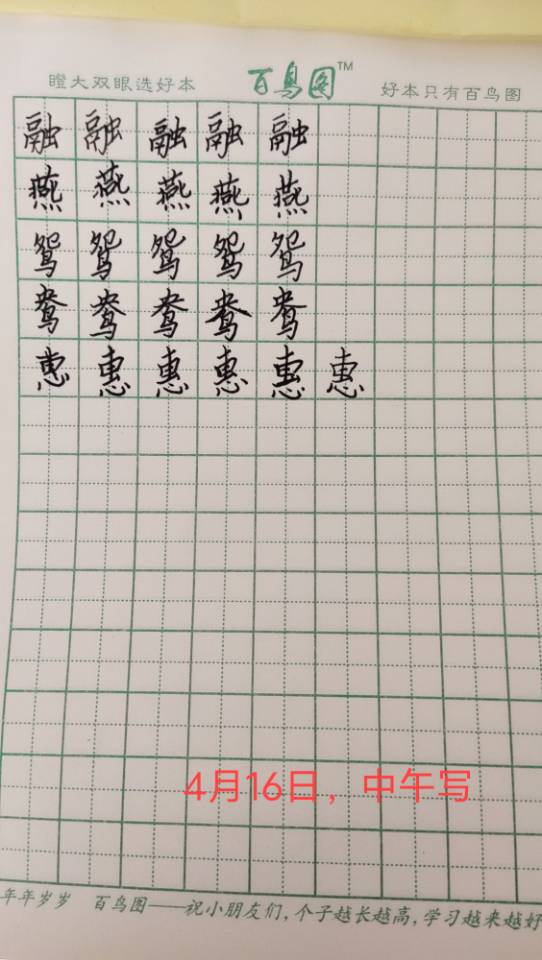 瞪大双眼选好本 百鸟图™ 好本只有百鸟图
融融融融融
燕燕燕燕燕
鸳鸳鸳鸳鸳
鸯鸯鸯鸯鸯
惠惠惠惠惠惠
4月16日，中午写
年年岁岁 百鸟图——祝小朋友们，个子越长越高，学习越来越好